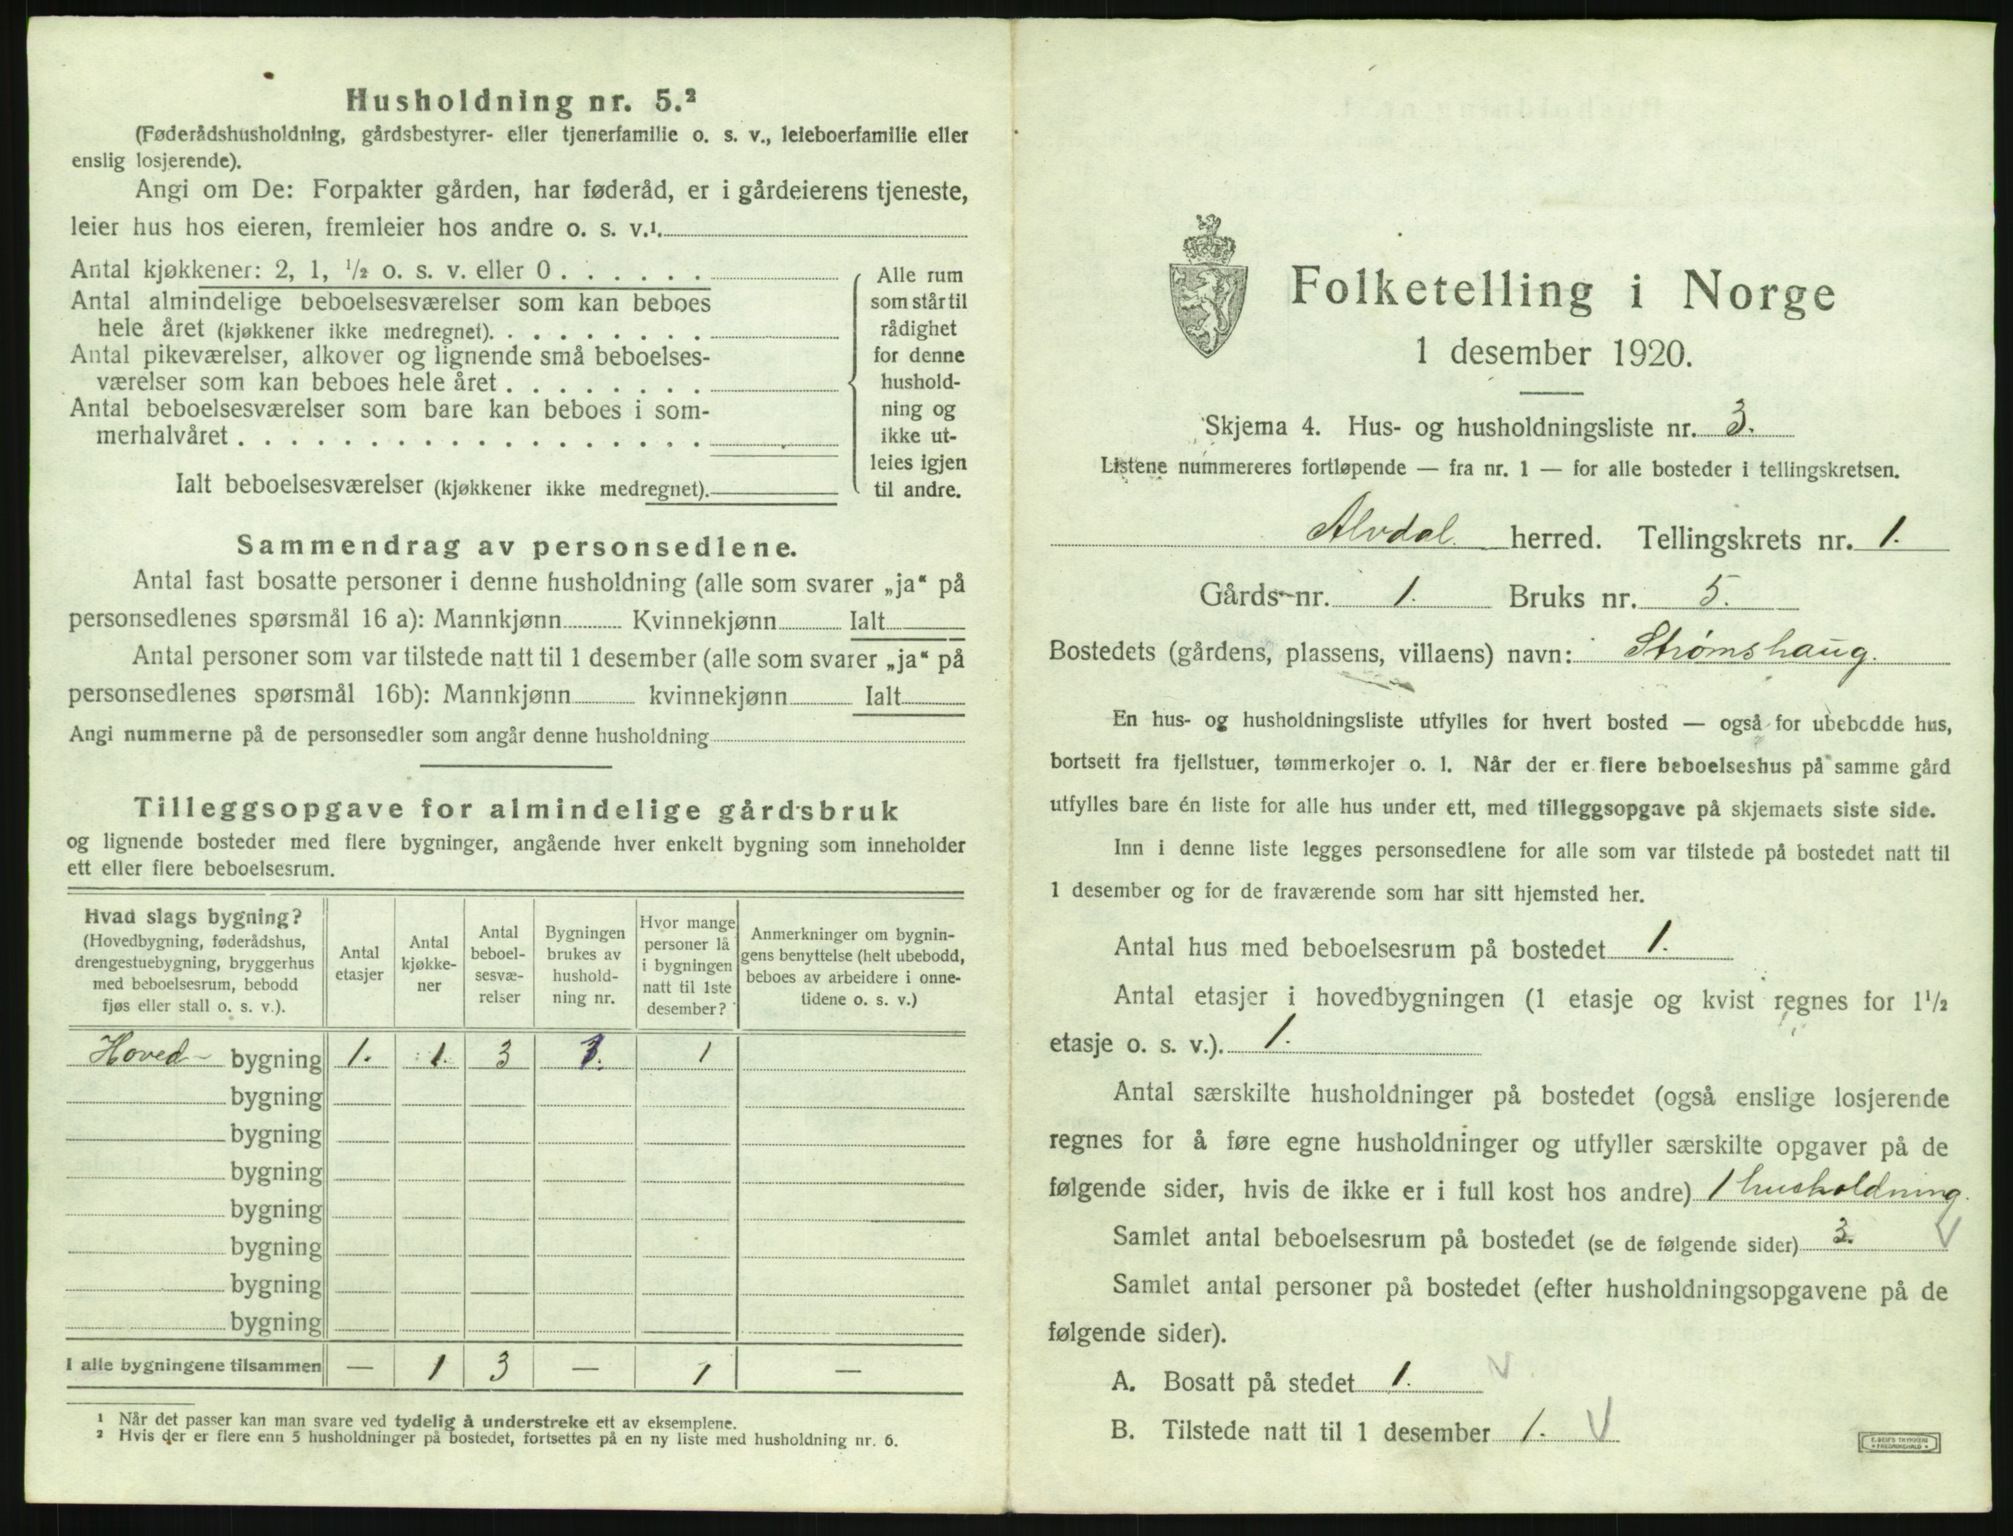 Husholdning nr. 5.²
(Føderådshusholdning, gårdsbestyrer- eller tjenerfamilie o. s. v., leieboerfamilie eller
enslig losjerende).
Angi om De: Forpakter gården, har føderåd, er i gårdeierens tjeneste,
leier hus hos eieren, fremleier hos andre o. s. v.¹.
Antal kjøkkener: 2, 1, ½ o. s. v. eller 0 . . . . . .
Antal almindelige beboelsesværelser som kan beboes
hele året (kjøkkener ikke medregnet). . . . . . . . .
Antal pikeværelser, alkover og lignende små beboelses-
værelser som kan beboes hele året . . . . . . . .
Antal beboelsesværelser som bare kan beboes i som-
merhalvåret . . . . . . . . . . . . . . . . . .
Ialt beboelsesværelser (kjøkkener ikke medregnet).
Alle rum
som står til
rådighet
for denne
hushold-
ning og
ikke ut-
leies igjen
til andre.
Sammendrag av personsedlene.
Antal fast bosatte personer i denne husholdning (alle som svarer „ja“ på
personsedlenes spørsmål 16 a): Mannkjønn Kvinnekjønn Ialt
Antal personer som var tilstede natt til 1 desember (alle som svarer „ja“ på
personsedlenes spørsmål 16b): Mannkjønn kvinnekjønn Ialt
Angi nummerne på de personsedler som angår denne husholdning
Tilleggsopgave for almindelige gårdsbruk
og lignende bosteder med flere bygninger, angående hver enkelt bygning som inneholder
ett eller flere beboelsesrum.
Hvad slags bygning?
(Hovedbygning, føderådshus,
drengestuebygning, bryggerhus
med beboelsesrum, bebodd
fjøs eller stall o. s. v.).
Antal
etasjer
Antal
kjøkke-
ner
Antal
beboel-
sesvæ-
relser
Bygningen
brukes av
hushold-
ning nr.
Hvor mange
personer lå
i bygningen
natt til 1ste
desember?
Anmerkninger om bygnin-
gens benyttelse (helt ubebodd,
beboes av arbeidere i onne-
tidene o. s. v.)
Hoved- bygning 1. 1. 3 1. 1
bygning
bygning
bygning
bygning
bygning
bygning
bygning
I alle bygningene tilsammen — 1 3 — 1 —
¹ Når det passer kan man svare ved tydelig å understreke ett av eksemplene.
² Hvis der er flere enn 5 husholdninger på bostedet, fortsettes på en ny liste med husholdning nr. 6.
Folketelling i Norge
1 desember 1920.
Skjema 4. Hus- og husholdningsliste nr. 3.
Listene nummereres fortløpende — fra nr. 1 — for alle bosteder i tellingskretsen.
Alvdal. herred. Tellingskrets nr. 1.
Gårds-nr. 1. Bruks nr. 5.
Bostedets (gårdens, plassens, villaens) navn: Strømshaug.
En hus- og husholdningsliste utfylles for hvert bosted — også for ubebodde hus,
bortsett fra fjellstuer, tømmerkojer o. l. Når der er flere beboelseshus på samme gård
utfylles bare én liste for alle hus under ett, med tilleggsopgave på skjemaets siste side.
Inn i denne liste legges personsedlene for alle som var tilstede på bostedet natt til
1 desember og for de fraværende som har sitt hjemsted her.
Antal hus med beboelsesrum på bostedet 1.
Antal etasjer i hovedbygningen (1 etasje og kvist regnes for 1½
etasje o. s. v.). 1.
Antal særskilte husholdninger på bostedet (også enslige losjerende
regnes for å føre egne husholdninger og utfyller særskilte opgaver på de
følgende sider, hvis de ikke er i full kost hos andre) 1 husholdning.
Samlet antal beboelsesrum på bostedet (se de følgende sider) 3.
Samlet antal personer på bostedet (efter husholdningsopgavene på de
følgende sider).
A. Bosatt på stedet 1.
B. Tilstede natt til 1 desember 1.